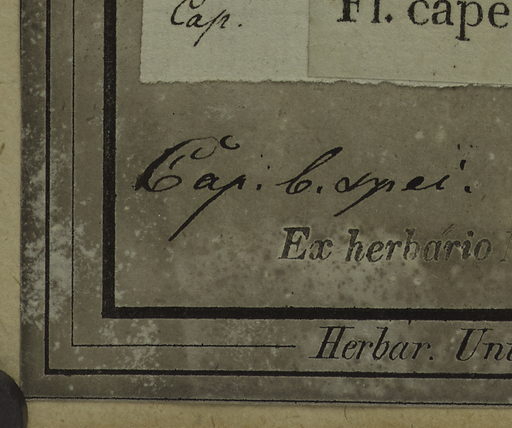 Cap.
Fl. cape
Cap. b. spei.
Ex herbário
Herbar. Uni